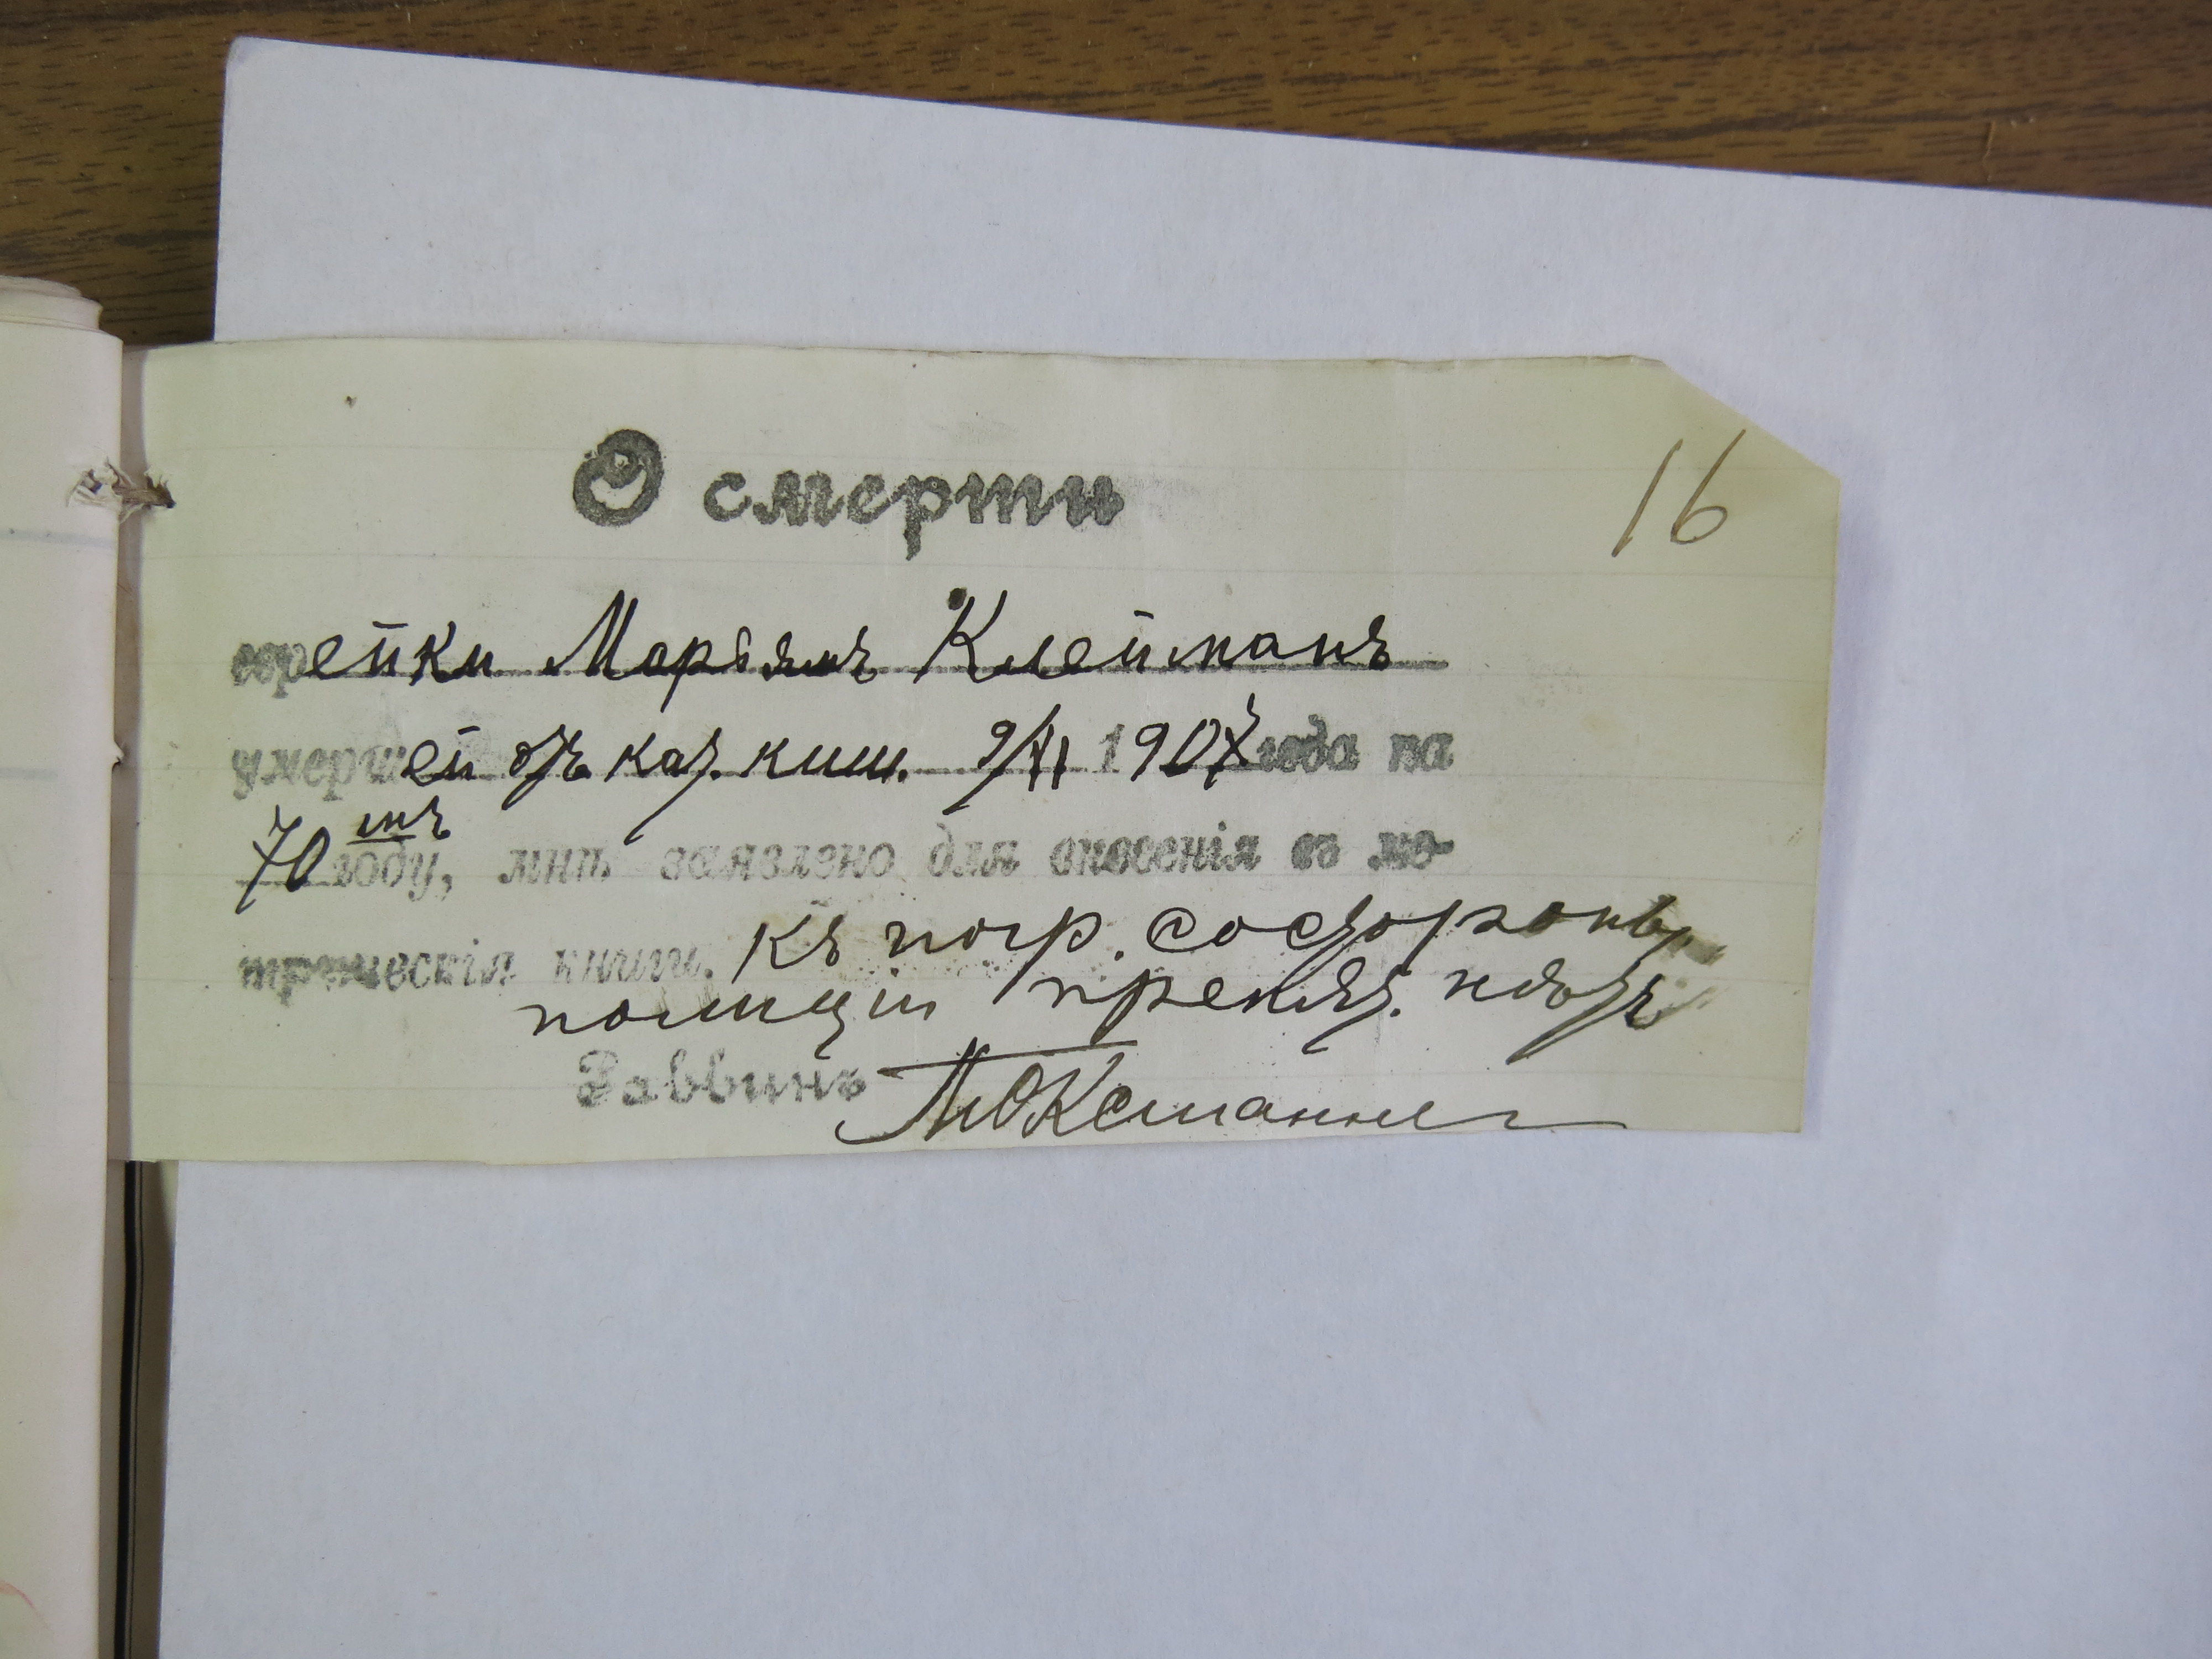 16
О смерти
еврейки Марьямъ Клейманъ
умершей отъ кат. киш. 9/XI 1907 года на
70 мъ году, мнѣ заявлено для внесенія въ ме-
трическія книги. Къ погр. со стороны
полиціи препят. нѣтъ
Раввинъ